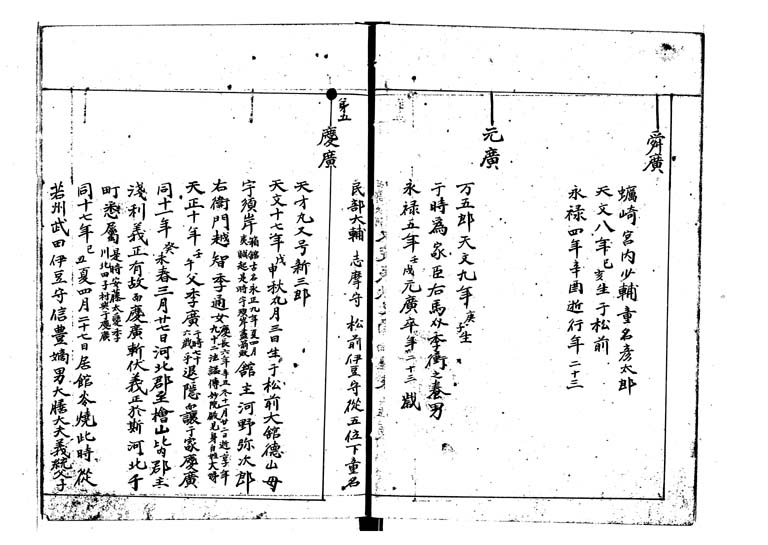 舜廣
蠣崎宮内少輔童名彦太郎
天文八年己亥生于松前
永禄四年辛酉逝行年二十三
元廣
万五郎天文九年庚子生
于時為家臣右馬双季衡之養男
永禄五年壬戌元廣卒年二十三歳
第五
慶廣
民部大輔志摩守松前伊豆守從五位下童名
天才丸又号新三郎
天文十七年戊申秋九月三日生于松前大舘徳山母
宇須岸舘主河野弥次郎
右衛門越智季通女
天正十年壬午父季廣退隠而譲于家慶廣
同十一年癸未春三月廿七日河北郡至檜山比内郡主
淺利義正有故而慶廣斬伏義正於斯河北千
町悉屬
同十七年己丑夏四月二十七日居舘炎焼此時從
若州武田伊豆守信豊嫡男大膳大夫義統父子